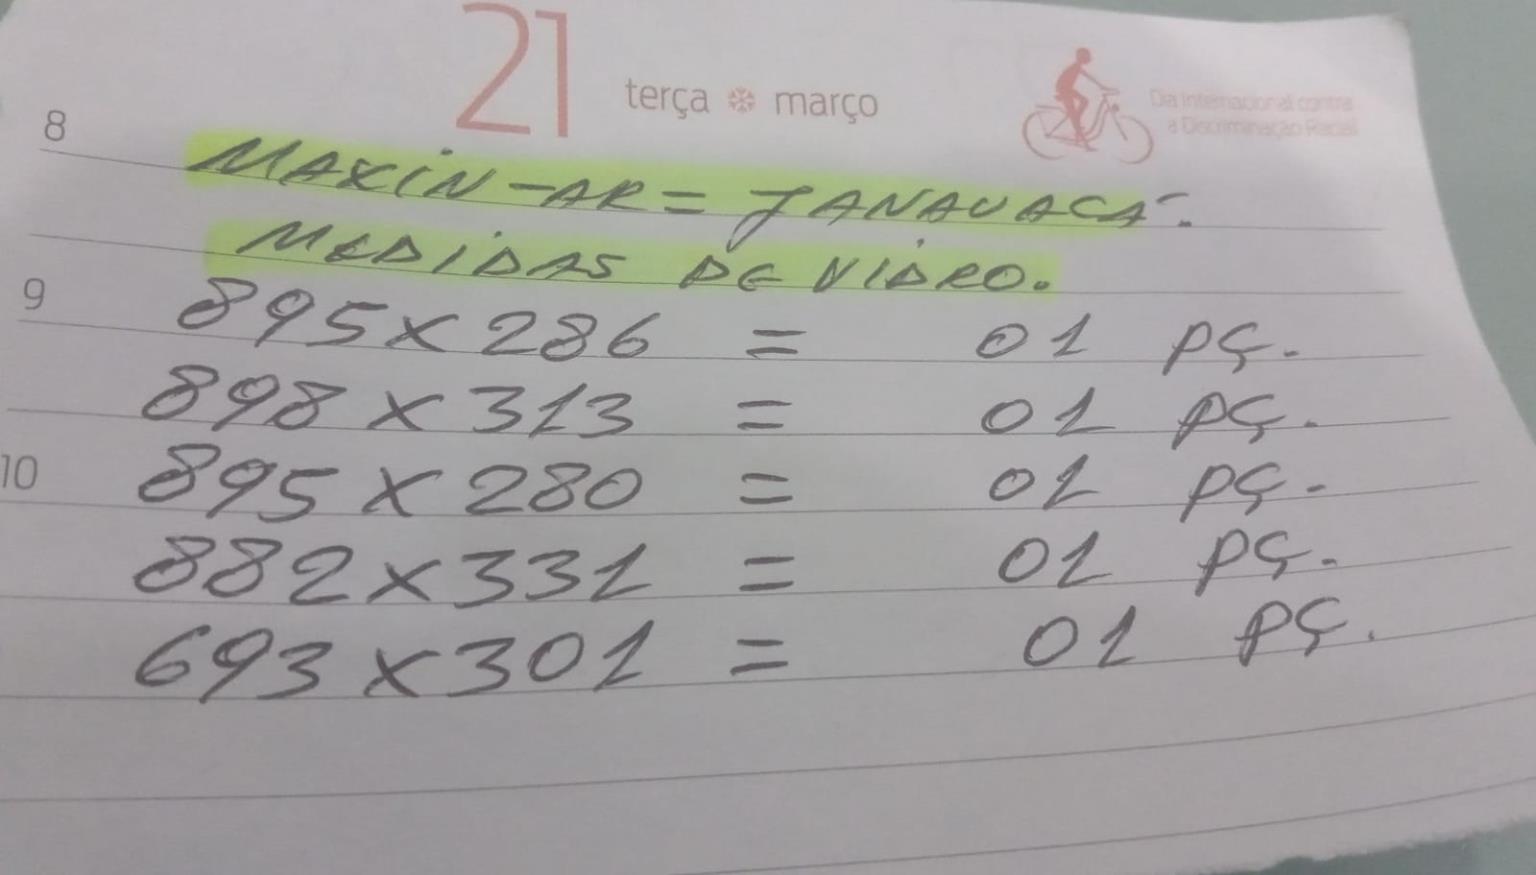 21 terça março
Dia Internacional contra
a Discriminação Racial
8
MAXIN-AR = JANAUACÁ.
MEDIDAS DE VIDRO.
9
895 x 286 = 01 PÇ.
898 x 313 = 01 PÇ.
10
895 x 280 = 01 PÇ.
882 x 331 = 01 PÇ.
693 x 301 = 01 PÇ.